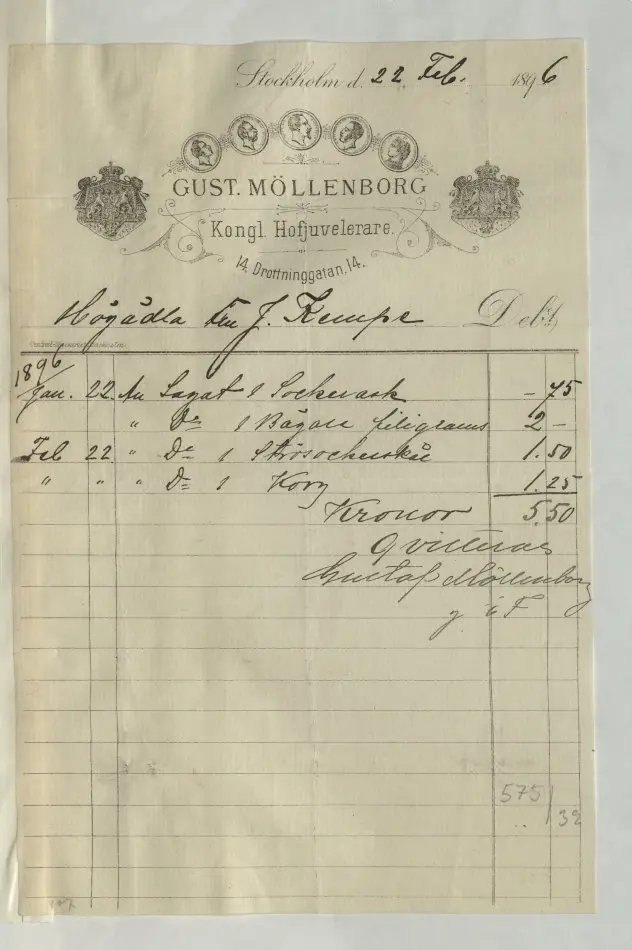 Stockholm d. 22 Feb. 1896
GUST. MÖLLENBORG
Kongl. Hofjuvelerare.
14, Drottninggatan, 14.
Högädla Fru J. Kempe Debt
1896
Jan. 22 An Lagat 1 Sockerask – 75
" Do 1 Bägare filigrams 2 –
Feb 22 " Do 1 Strösockerskål 1.50
" " " Do 1 Korg 1.25
Kronor 5,50
Qvitteras
Gustaf Möllenborg
575
32